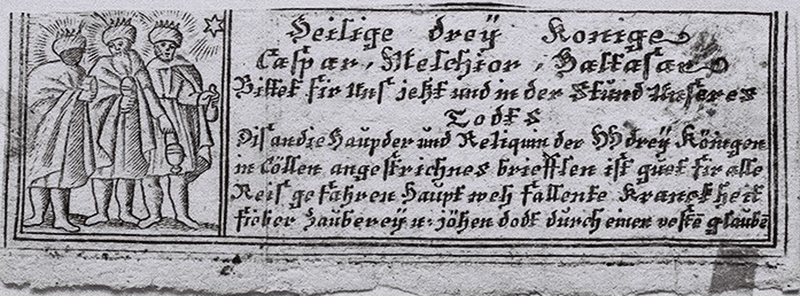 Heilige dreÿ Konige
Caspar, Melchior, Baltasar
Bittet fir Uns jetzt und in der Stund Unseres
Todts
Dis an die Haupder und Reliquin der HH dreÿ Königen
in Cöllen angestrichnes briefflen ist guet fir alle
Reis gefahren Haupt weh fallente Kranckheit
fieber Zaubereÿ u: jöhen dodt durch einen vestē glaubē